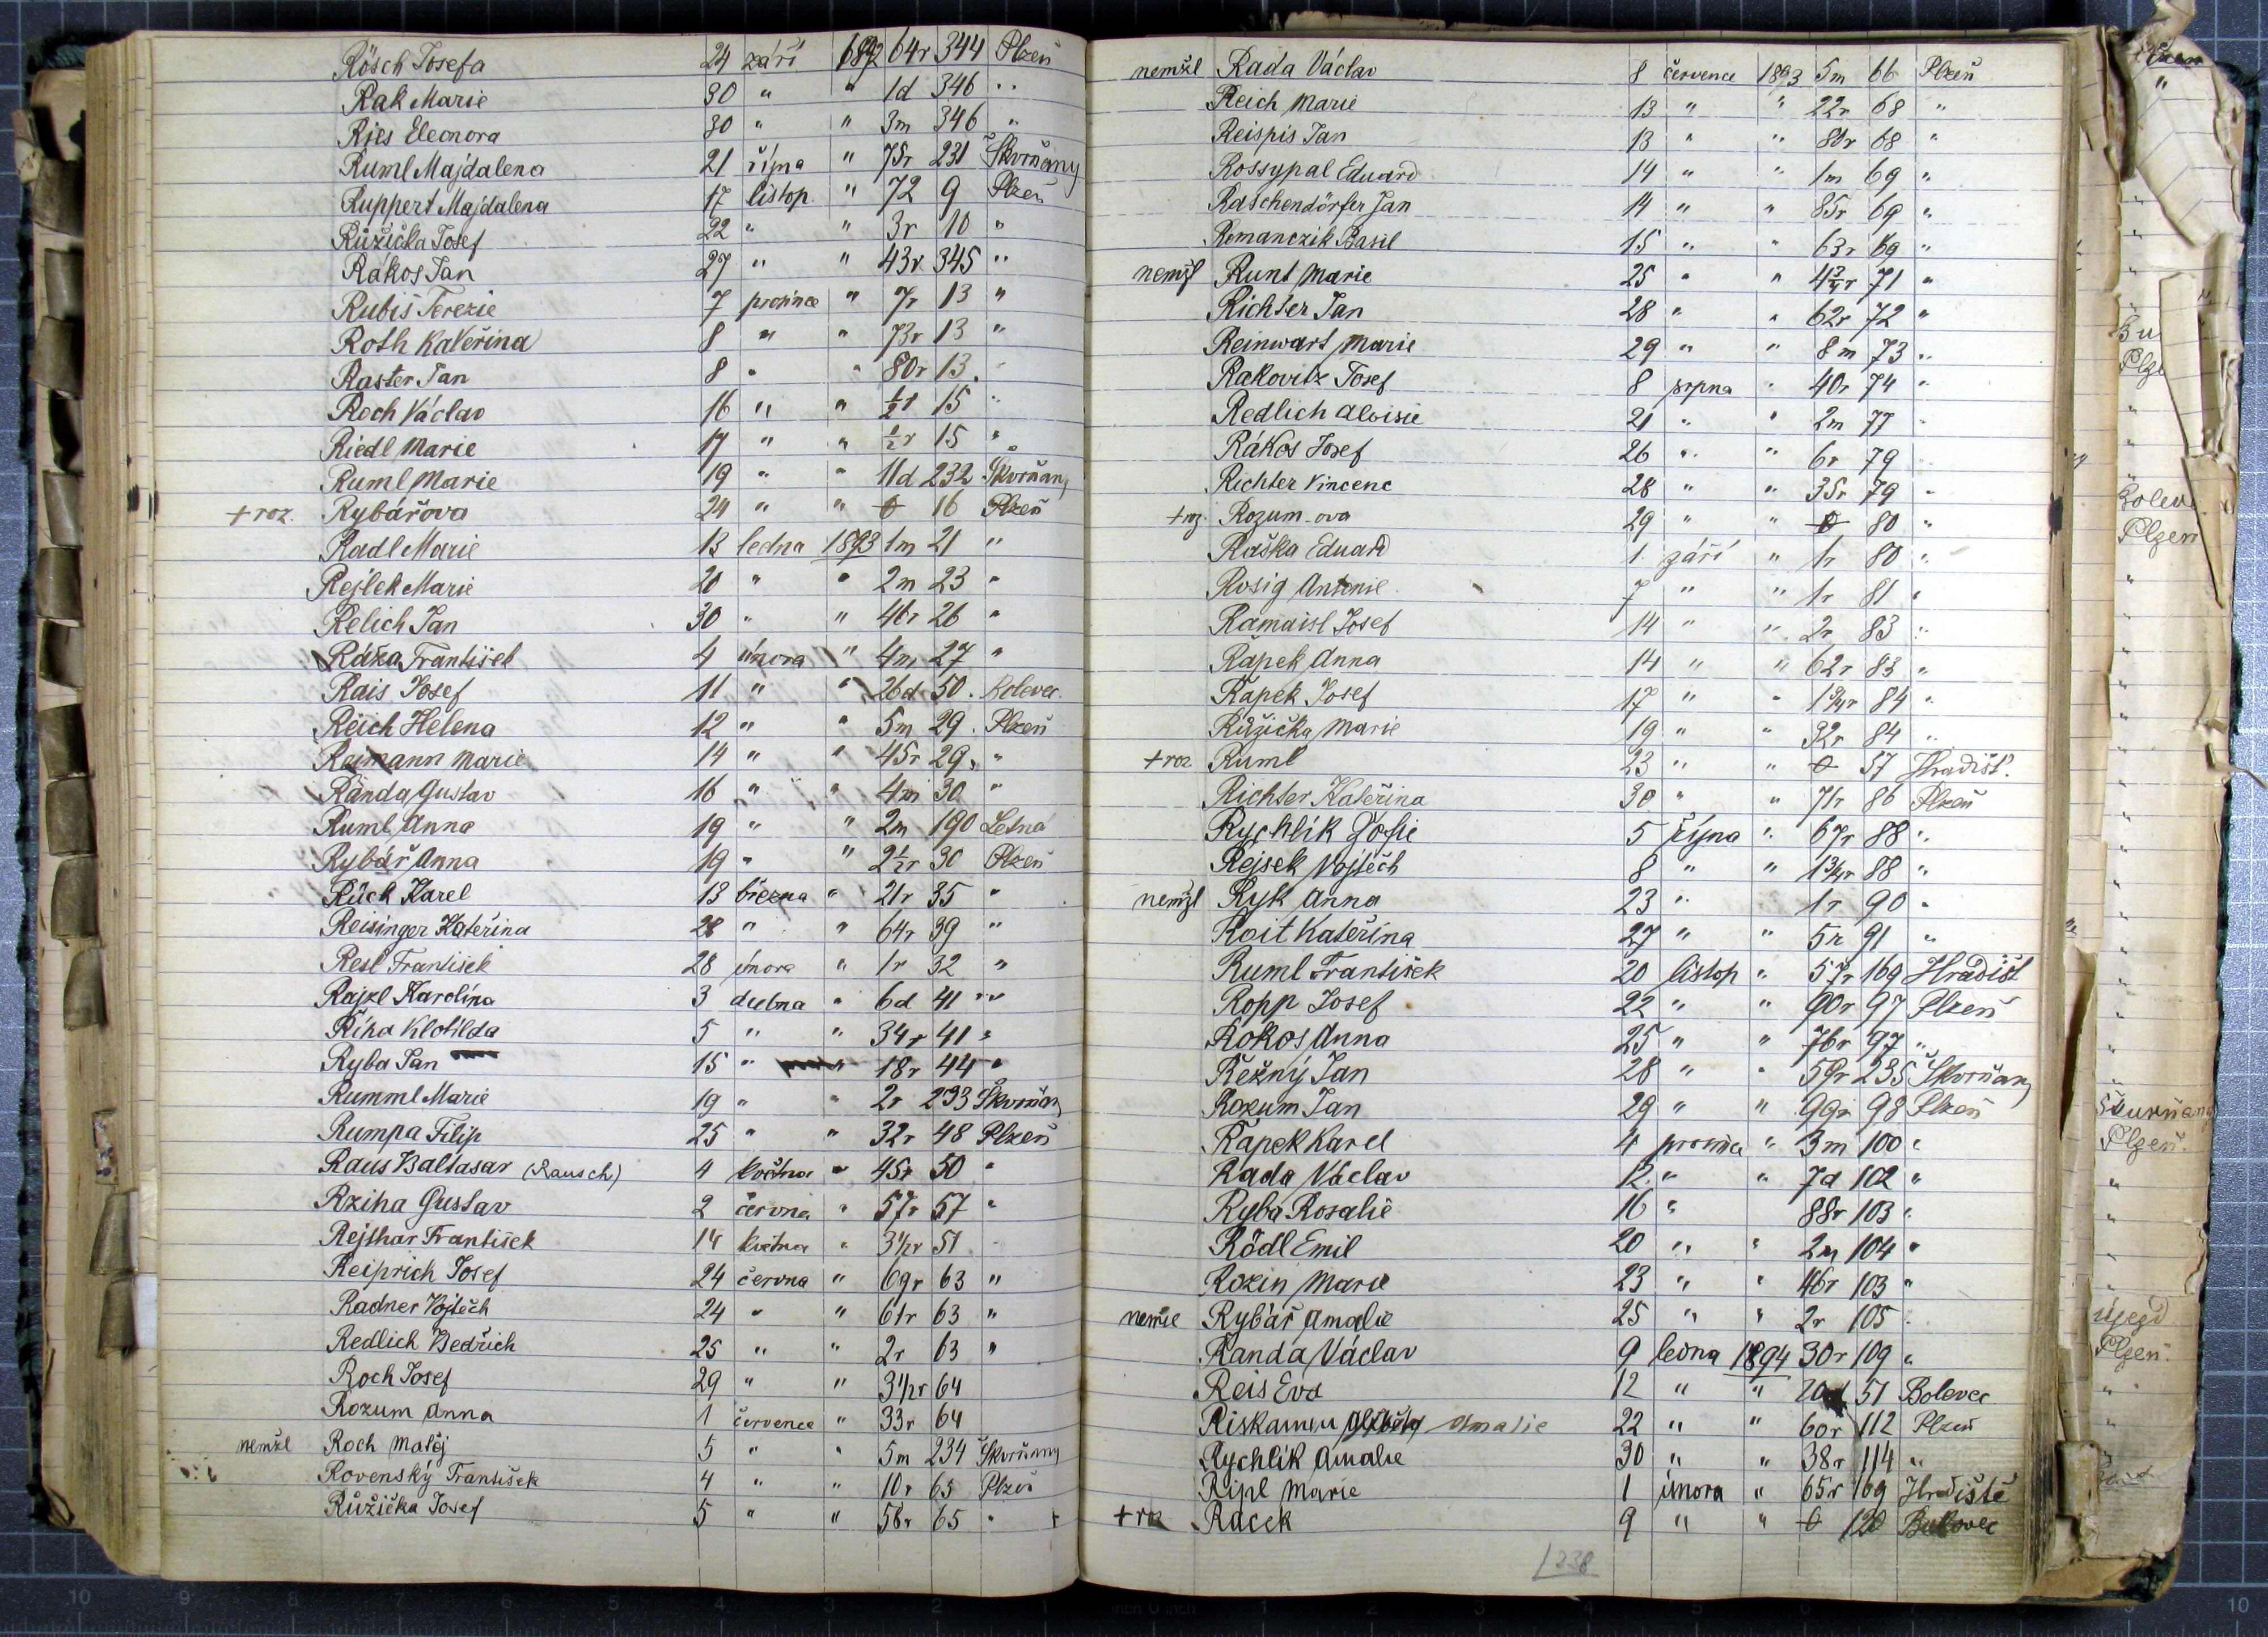 Rösch Josefa 24 září 1892 64r 344 Plzeň
Rak Marie 30 " " 1d 346 "
Ries Eleonora 30 " " 3m 346 "
Ruml Majdalena 21 října " 75r 231 Škvrňany
Ruppert Majdalena 17 listop. " 72 9 Plzeň
Růžička Josef 22 " " 3r 10 "
Rákos Jan 27 " " 43r 345 "
Rubiš Terezie 7 prosince " 7r 13 "
Roth Kateřina 8 " " 73r 13 "
Raster Jan 8 " " 80r 13 "
Roch Václav 16 " " ½r 15 "
Riedl Marie 17 " " ½r 15 "
Ruml Marie 19 " " 11d 232 Škvrňany
+ roz. Rybářova 24 " " 0 16 Plzeň
Radl Marie 13 ledna 1893 1m 21 "
Rejlek Marie 20 " " 2m 23 "
Relich Jan 30 " " 46r 26 "
Ráža František 4 února " 4m 27 "
Rais Josef 11 " " 26d 50 Bolevec
Reich Helena 12 " " 5m 29 Plzeň
Raimann Marie 14 " " 45r 29 "
Randa Gustav 16 " " 4m 30 "
Ruml Anna 19 " " 2m 190 Letná
Rybář Anna 19 " " 2½r 30 Plzeň
Rück Karel 13 března " 21r 35 "
Reisinger Kateřina 28 " " 64r 39 "
Resl František 28 února " 1r 32 "
Rajzl Karolína 3 dubna " 6d 41 "
Říha Klotilda 5 " " 34r 41 "
Ryba Jan 15 " " 18r 44 "
Rumml Marie 19 " " 2r 233 Škvrňany
Rumpa Filip 25 " " 32r 48 Plzeň
Raus Baltasar (Rausch) 4 května " 45r 50 "
Rziha Gustav 2 června " 57r 57 "
Rejthar František 14 května " 3½r 51 "
Reiprich Josef 24 června " 69r 63 "
Radner Vojtěch 24 " " 61r 63 "
Redlich Bedřich 25 " " 2r 63 "
Roch Josef 29 " " 3½r 64
Rozum Anna 1 července " 33r 64
nemžl Roch Matěj 5 " " 5m 234 Škvrňany
Rovenský František 4 " " 10r 65 Plzeň
Růžička Josef 5 " " 56r 65 "
nemžl Rada Václav 8 července 1893 5m 66 Plzeň
Reich Marie 13 " " 22r 68 "
Reispis Jan 13 " " 80r 68 "
Rossypal Eduard 14 " " 1m 69 "
Raschendörfer Jan 14 " " 85r 69 "
Romanczik Basil 15 " " 63r 69 "
nemžl Runt Marie 25 " " 4¾r 71 "
Richter Jan 28 " " 62r 72 "
Reinwart Marie 29 " " 8m 73 "
Rakovitz Josef 8 srpna " 40r 74 "
Redlich Aloisie 21 " " 2m 77 "
Rákos Josef 26 " " 6r 79
Richter Vincenc 28 " " 35r 79 "
+ roz. Rozum-ova 29 " " 0 80 "
Raška Eduard 1. září " 1r 80 "
Rosig Antonie 7 " " 1r 81 "
Ramaisl Josef 14 " " 2r 83 "
Řapek Anna 14 " " 62r 83 "
Řapek Josef 17 " " 1¾r 84 "
Růžička Marie 19 " " 32r 84 "
+ roz Ruml 23 " " 0 57 Hradišť.
Richter Kateřina 30 " " 71r 86 Plzeň
Rychlík Žofie 5 října " 67r 88 "
Rejsek Vojtěch 8 " " 1¾r 88 "
nemžl Ryk Anna 23 " 1r 90 "
Roit Kateřina 27 " " 5r 91 "
Ruml František 20 listop " 57r 169 Hradišť
Ropp Josef 22 " " 90r 97 Plzeň
Rokos Anna 25 " " 76r 97 "
Řežný Jan 28 " " 59r 235 Škvrňany
Rozum Jan 29 " " 99r 98 Plzeň
Řapek Karel 4 prosince " 3m 100 "
Rada Václav 12. " " 7d 102 "
Ryba Rosalie 16 " 88r 103 "
Rödl Emil 20 " " 2m 104 "
Rozin Marie 23 " " 46r 103 "
nemže Rybář Amalie 25 " " 2r 105
Randa Václav 9 ledna 1894 30r 109 "
Reis Eva 12 " " 20d 51 Bolevec
Amalie 22 " " 60r 112 Plzeň
Rychlík Amalie 30 " " 38r 114 "
Ripl Marie 1 února " 65r 169 Hradiště
+ roz Racek 9 " " 0 120 Bukovec
238
Bu
Plz
Boleve
Plzen
Škvrňany
Plzeň.
Újezd
Plzeň.
10 9 8 7 6 5 4 3 2 1 inch 0 inch 1 2 3 4 5 6 7 8 9 10